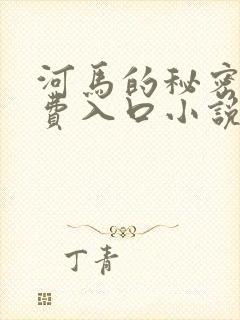 河馬的秘密
費入口小說
丁青